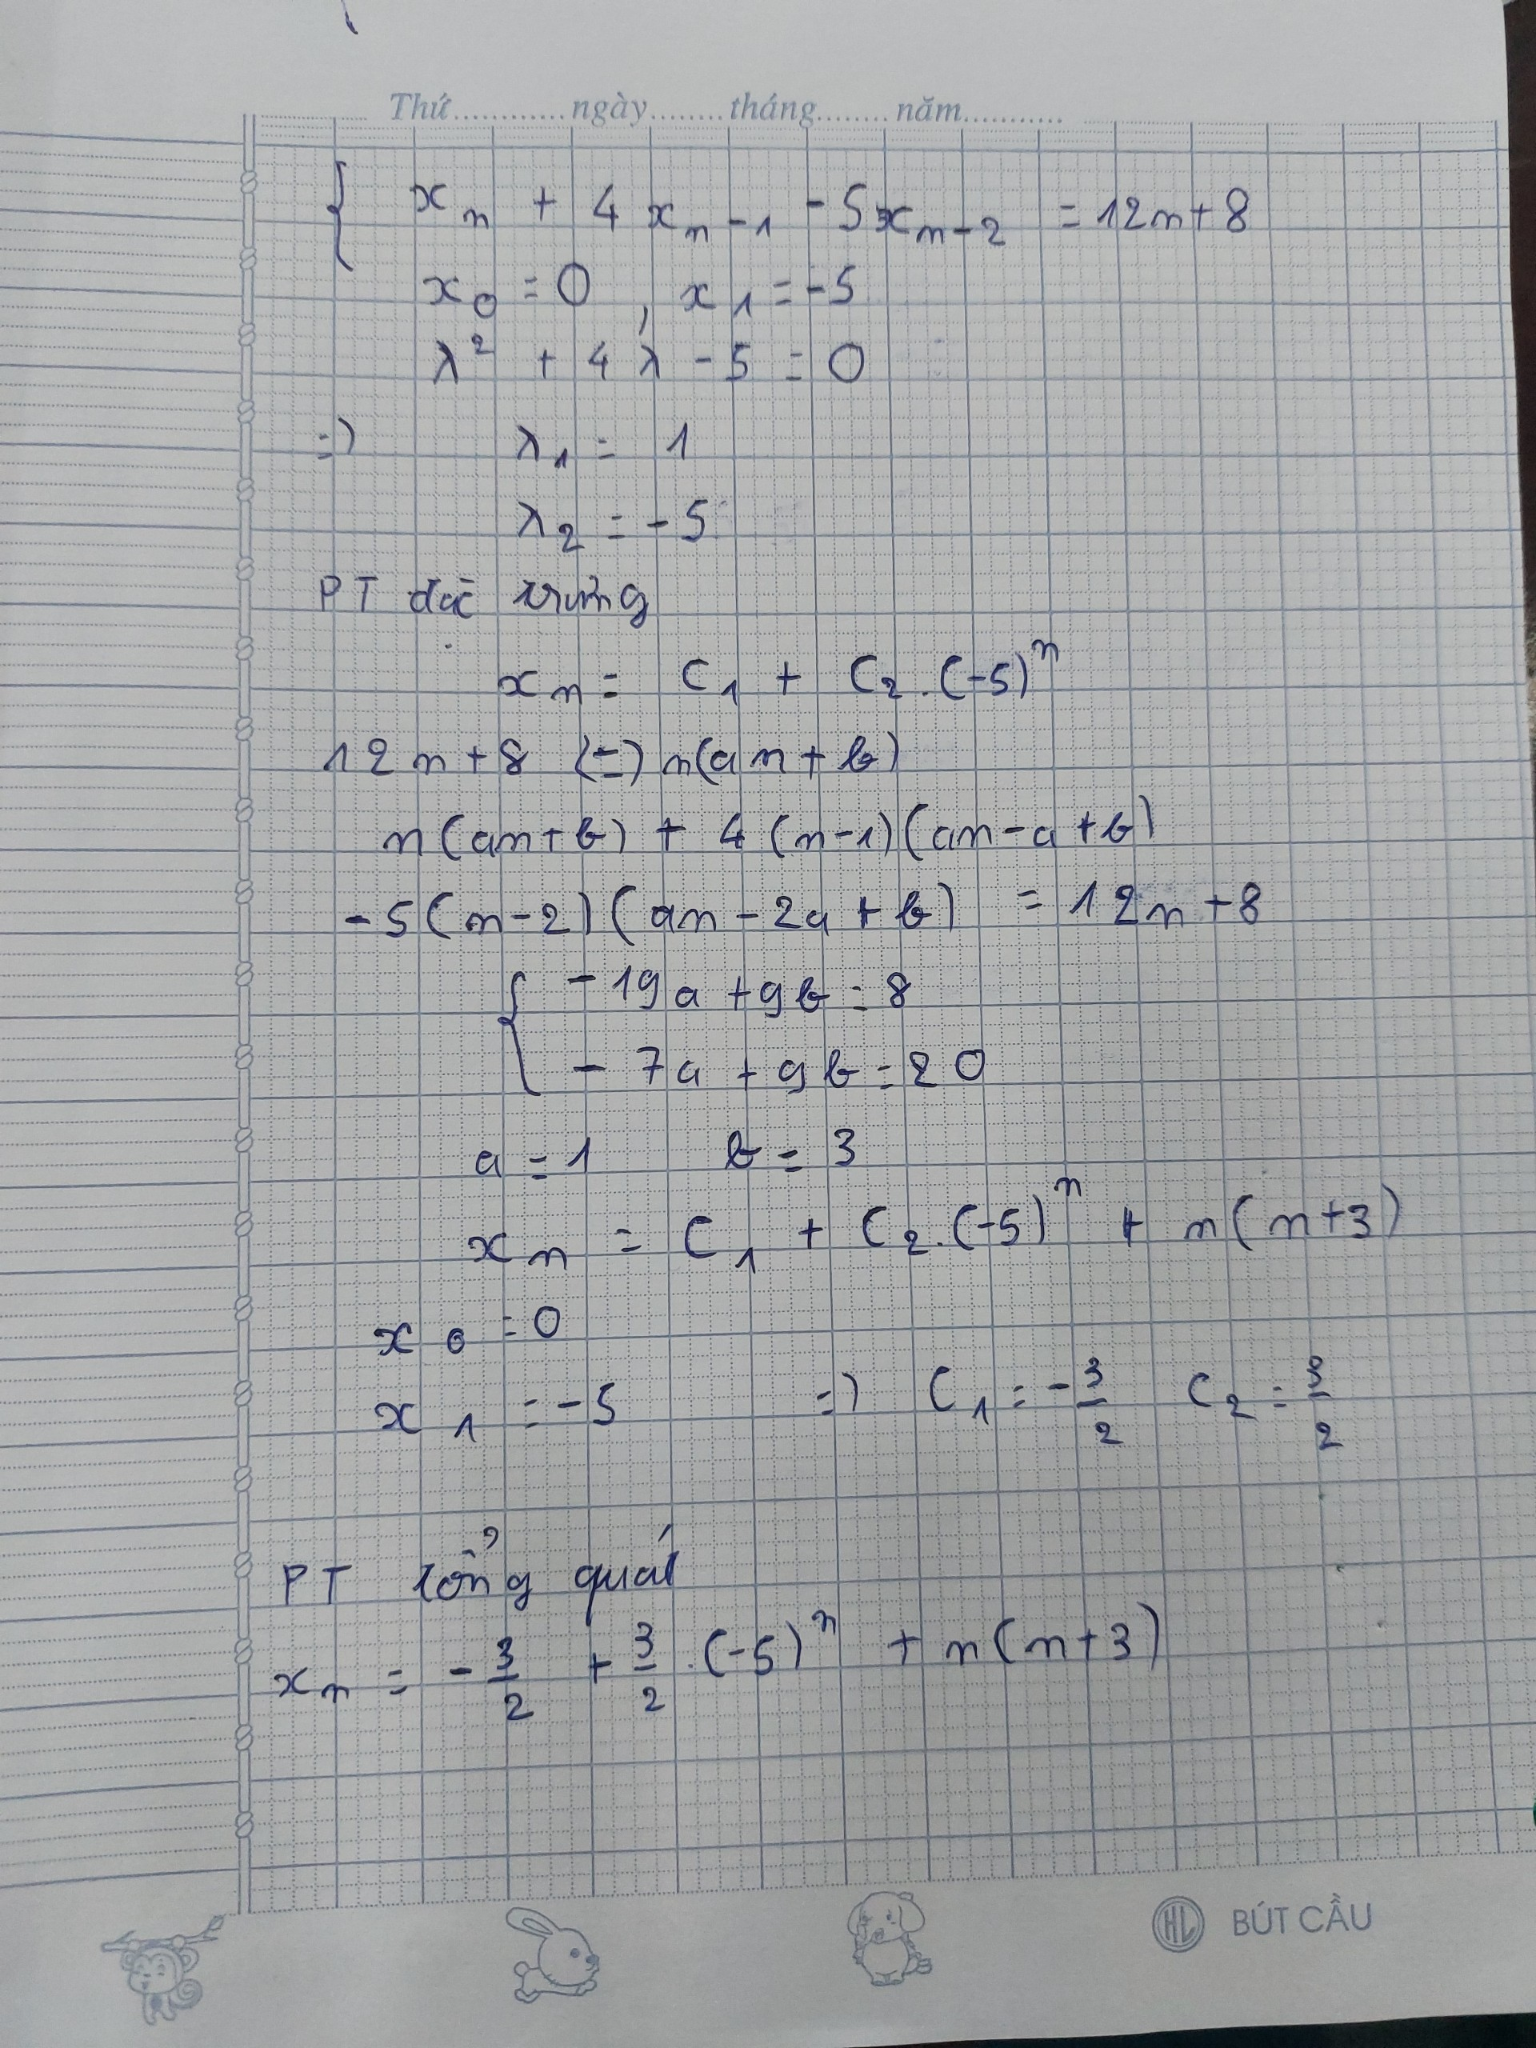 Thứ............ngày........tháng........năm...........
{ xₙ + 4xₙ₋₁ - 5xₙ₋₂ = 12n + 8
x₀ = 0 , x₁ = -5
λ² + 4λ - 5 = 0
=) λ₁ = 1
λ₂ = -5
PT đặc trưng
xₙ = C₁ + C₂.(-5)ⁿ
12n + 8 (=) n(an + b)
n(an+b) + 4(n-1)(an-a+b)
-5(n-2)(an-2a+b) = 12n+8
{ -19a + 9b = 8
- 7a + 9b = 20
a = 1 b = 3
xₙ = C₁ + C₂.(-5)ⁿ + n(n+3)
x₀ = 0
x₁ = -5 =) C₁ = -3/2 C₂ = 3/2
PT tổng quát
xₙ = -3/2 + 3/2.(-5)ⁿ + n(n+3)
HL BÚT CẦU